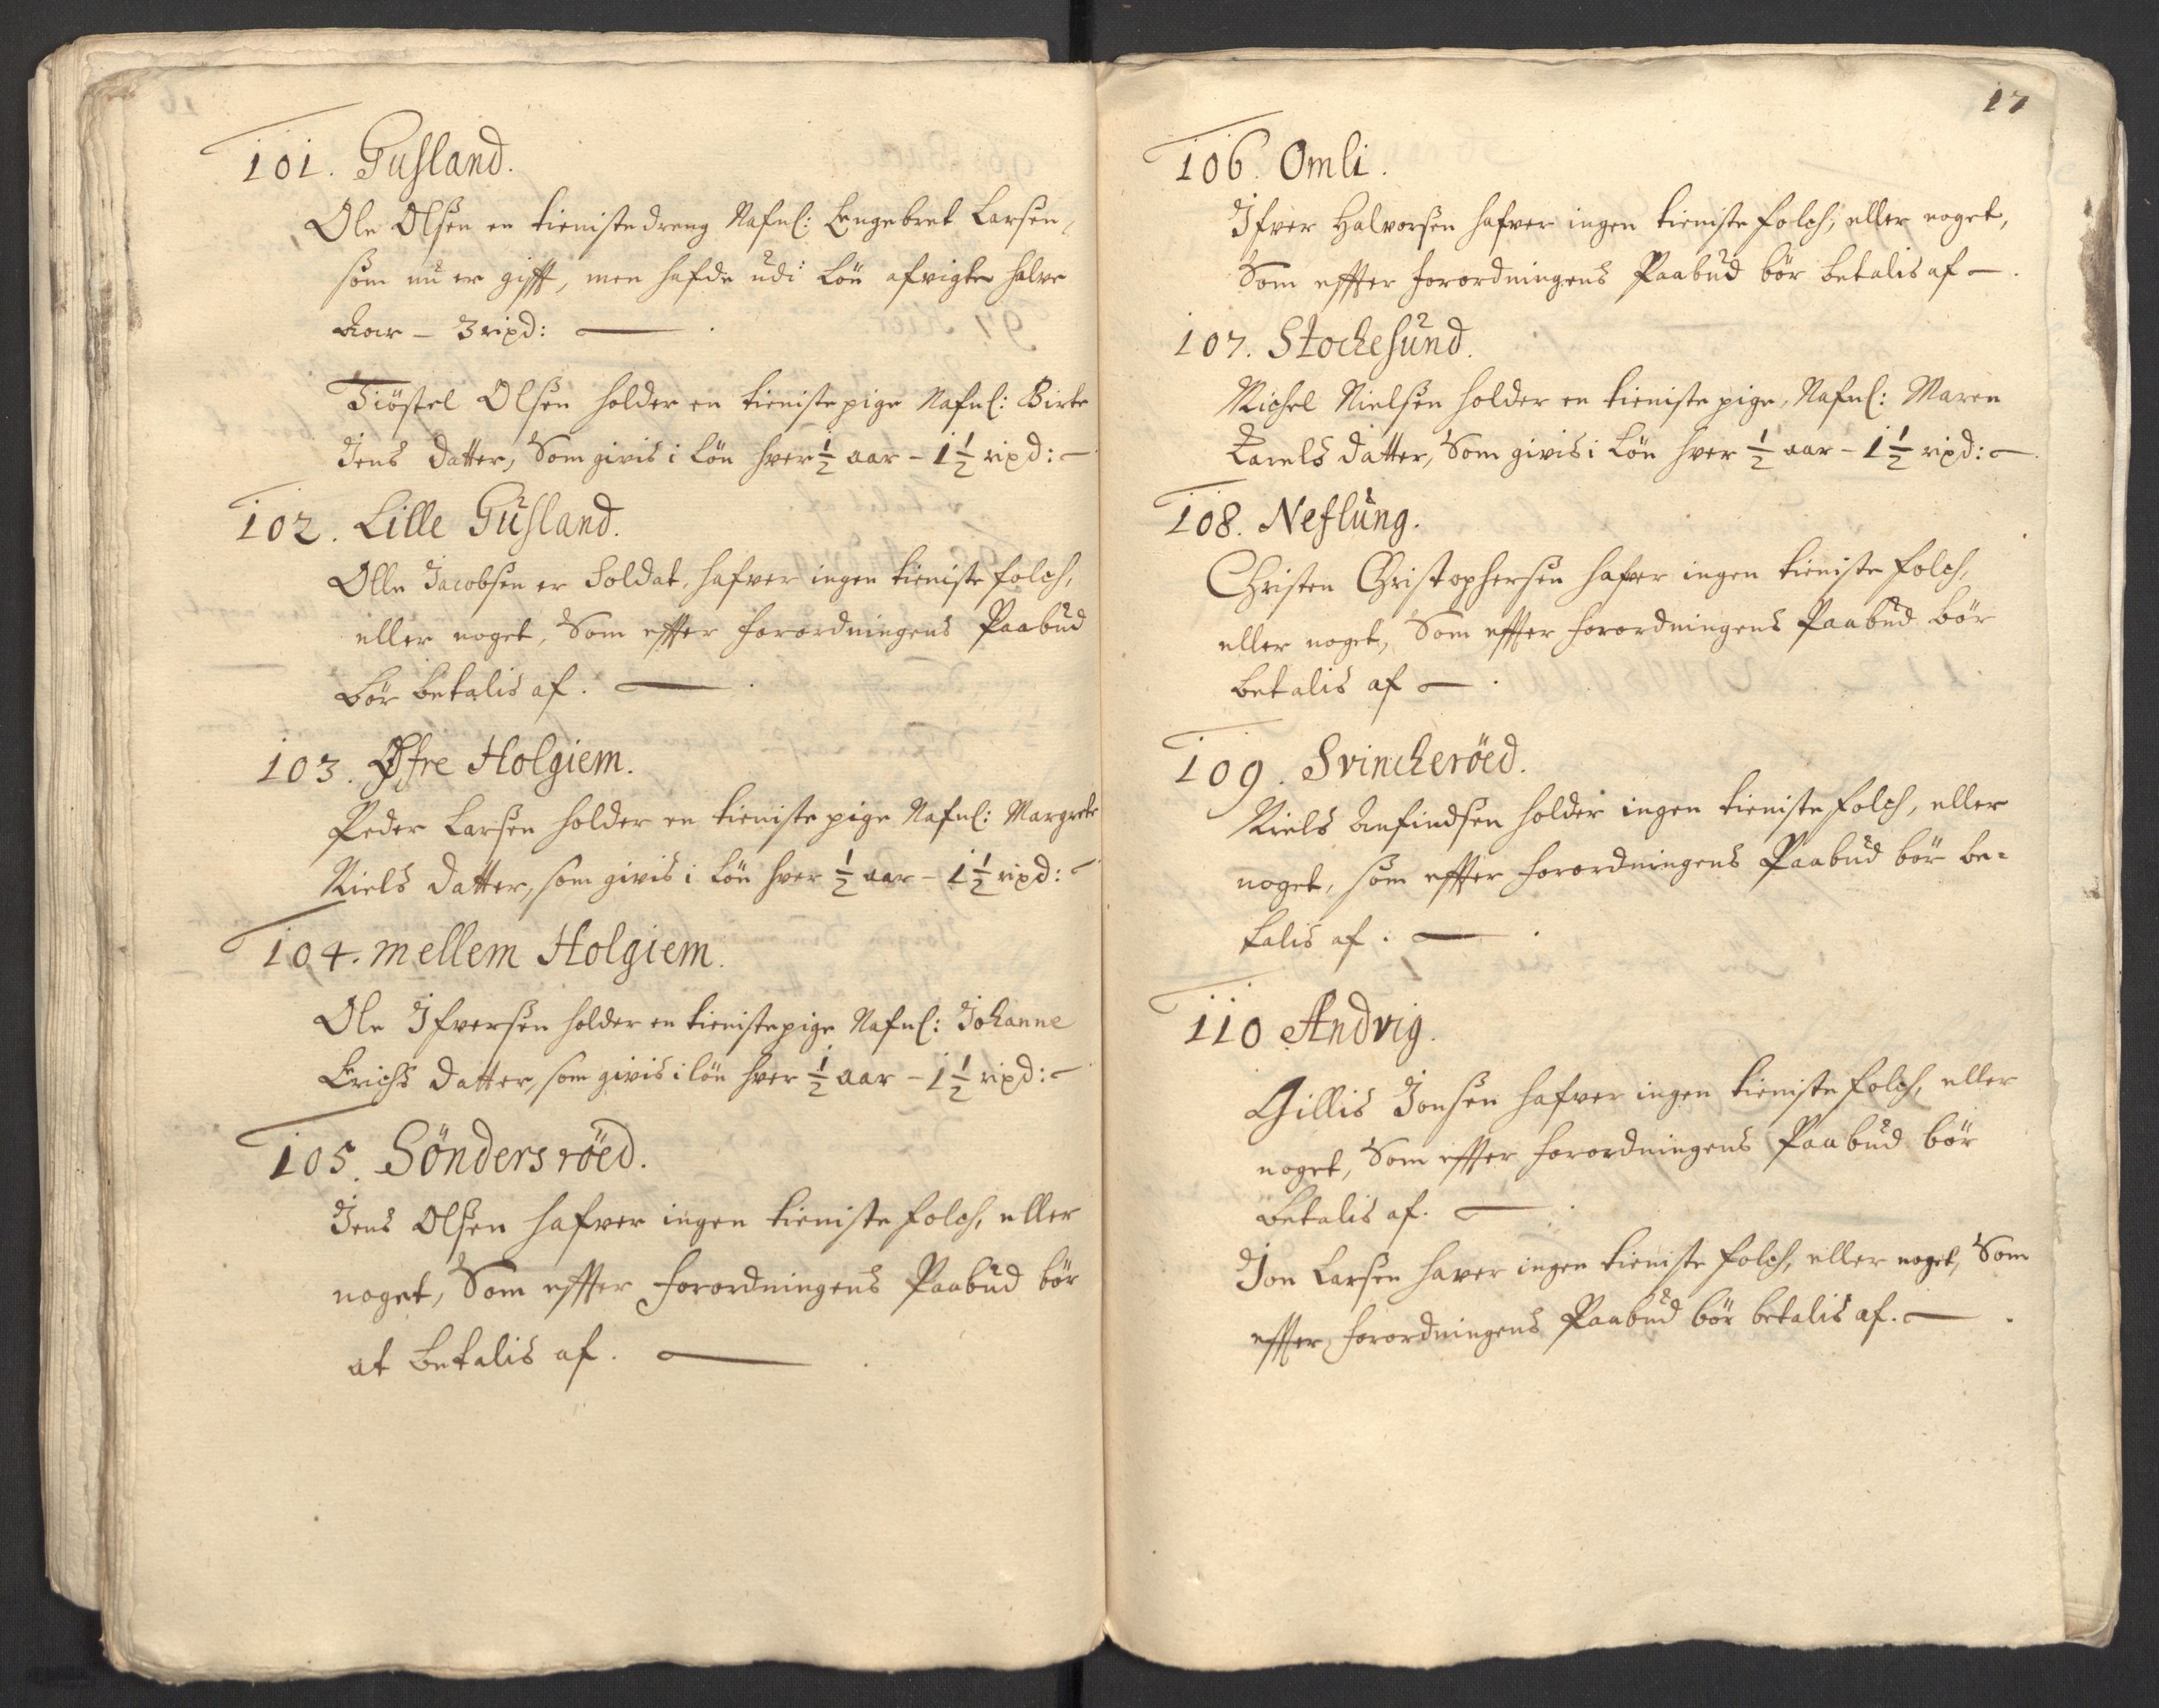 101. Gusland.
Ole Olsen en tieniste dreng Nafnl: Engebret Larsen,
som nu er gifft, men hafde udi Løn afvigte halve
Aar – 3 rixd:
Tiöstel Olsen holder en tieniste pige Nafnl: Birte
Jens datter, Som givis i Løn hver ½ aar – 1½ rixd:
102. Lille Gusland.
Olle Jacobsen er Soldat, hafver ingen tieniste folch,
eller noget, Som effter forordningens Paabud
bör betalis af.
103. Øfre Holgiem.
Peder Larsen holder en tieniste pige Nafnl: Margrete
Niels datter, som givis i Løn hver ½ aar – 1½ rixd:
104. mellem Holgiem.
Ole Ifversen holder en tienistepige Nafnl: Johanne
Erichs datter, som givis i løn hver ½ aar – 1½ rixd:
105. Söndersröed.
Jens Olsen hafver ingen tieniste folch, eller
noget, Som effter forordningens Paabud bör
at betalis af.
17
106. Omli.
Ifver Halvorsen hafver ingen tieniste folch, eller noget,
Som effter forordningens Paabud bör betalis af
107. Stochesund.
Michel Nielsen holder en tieniste pige, Nafnl: Maren
datter, Som givis i Løn hver ½ aar – 1½ rixd:
108. Neflung.
Christen Christophersen hafver ingen tieniste folch,
eller noget, Som effter forordningens Paabud bör
betalis af
109. Svincheröed.
Niels Anfindsen holder ingen tieniste folch, eller
noget, som effter forordningens Paabud bör be-
talis af.
110 Andvig.
Gillis Jonsen hafver ingen tieniste folch, eller
noget, Som effter forordningens Paabud bör
betalis af.
Jon Larsen haver ingen tieniste folch, eller noget, Som
effter forordningens Paabud bör betalis af.